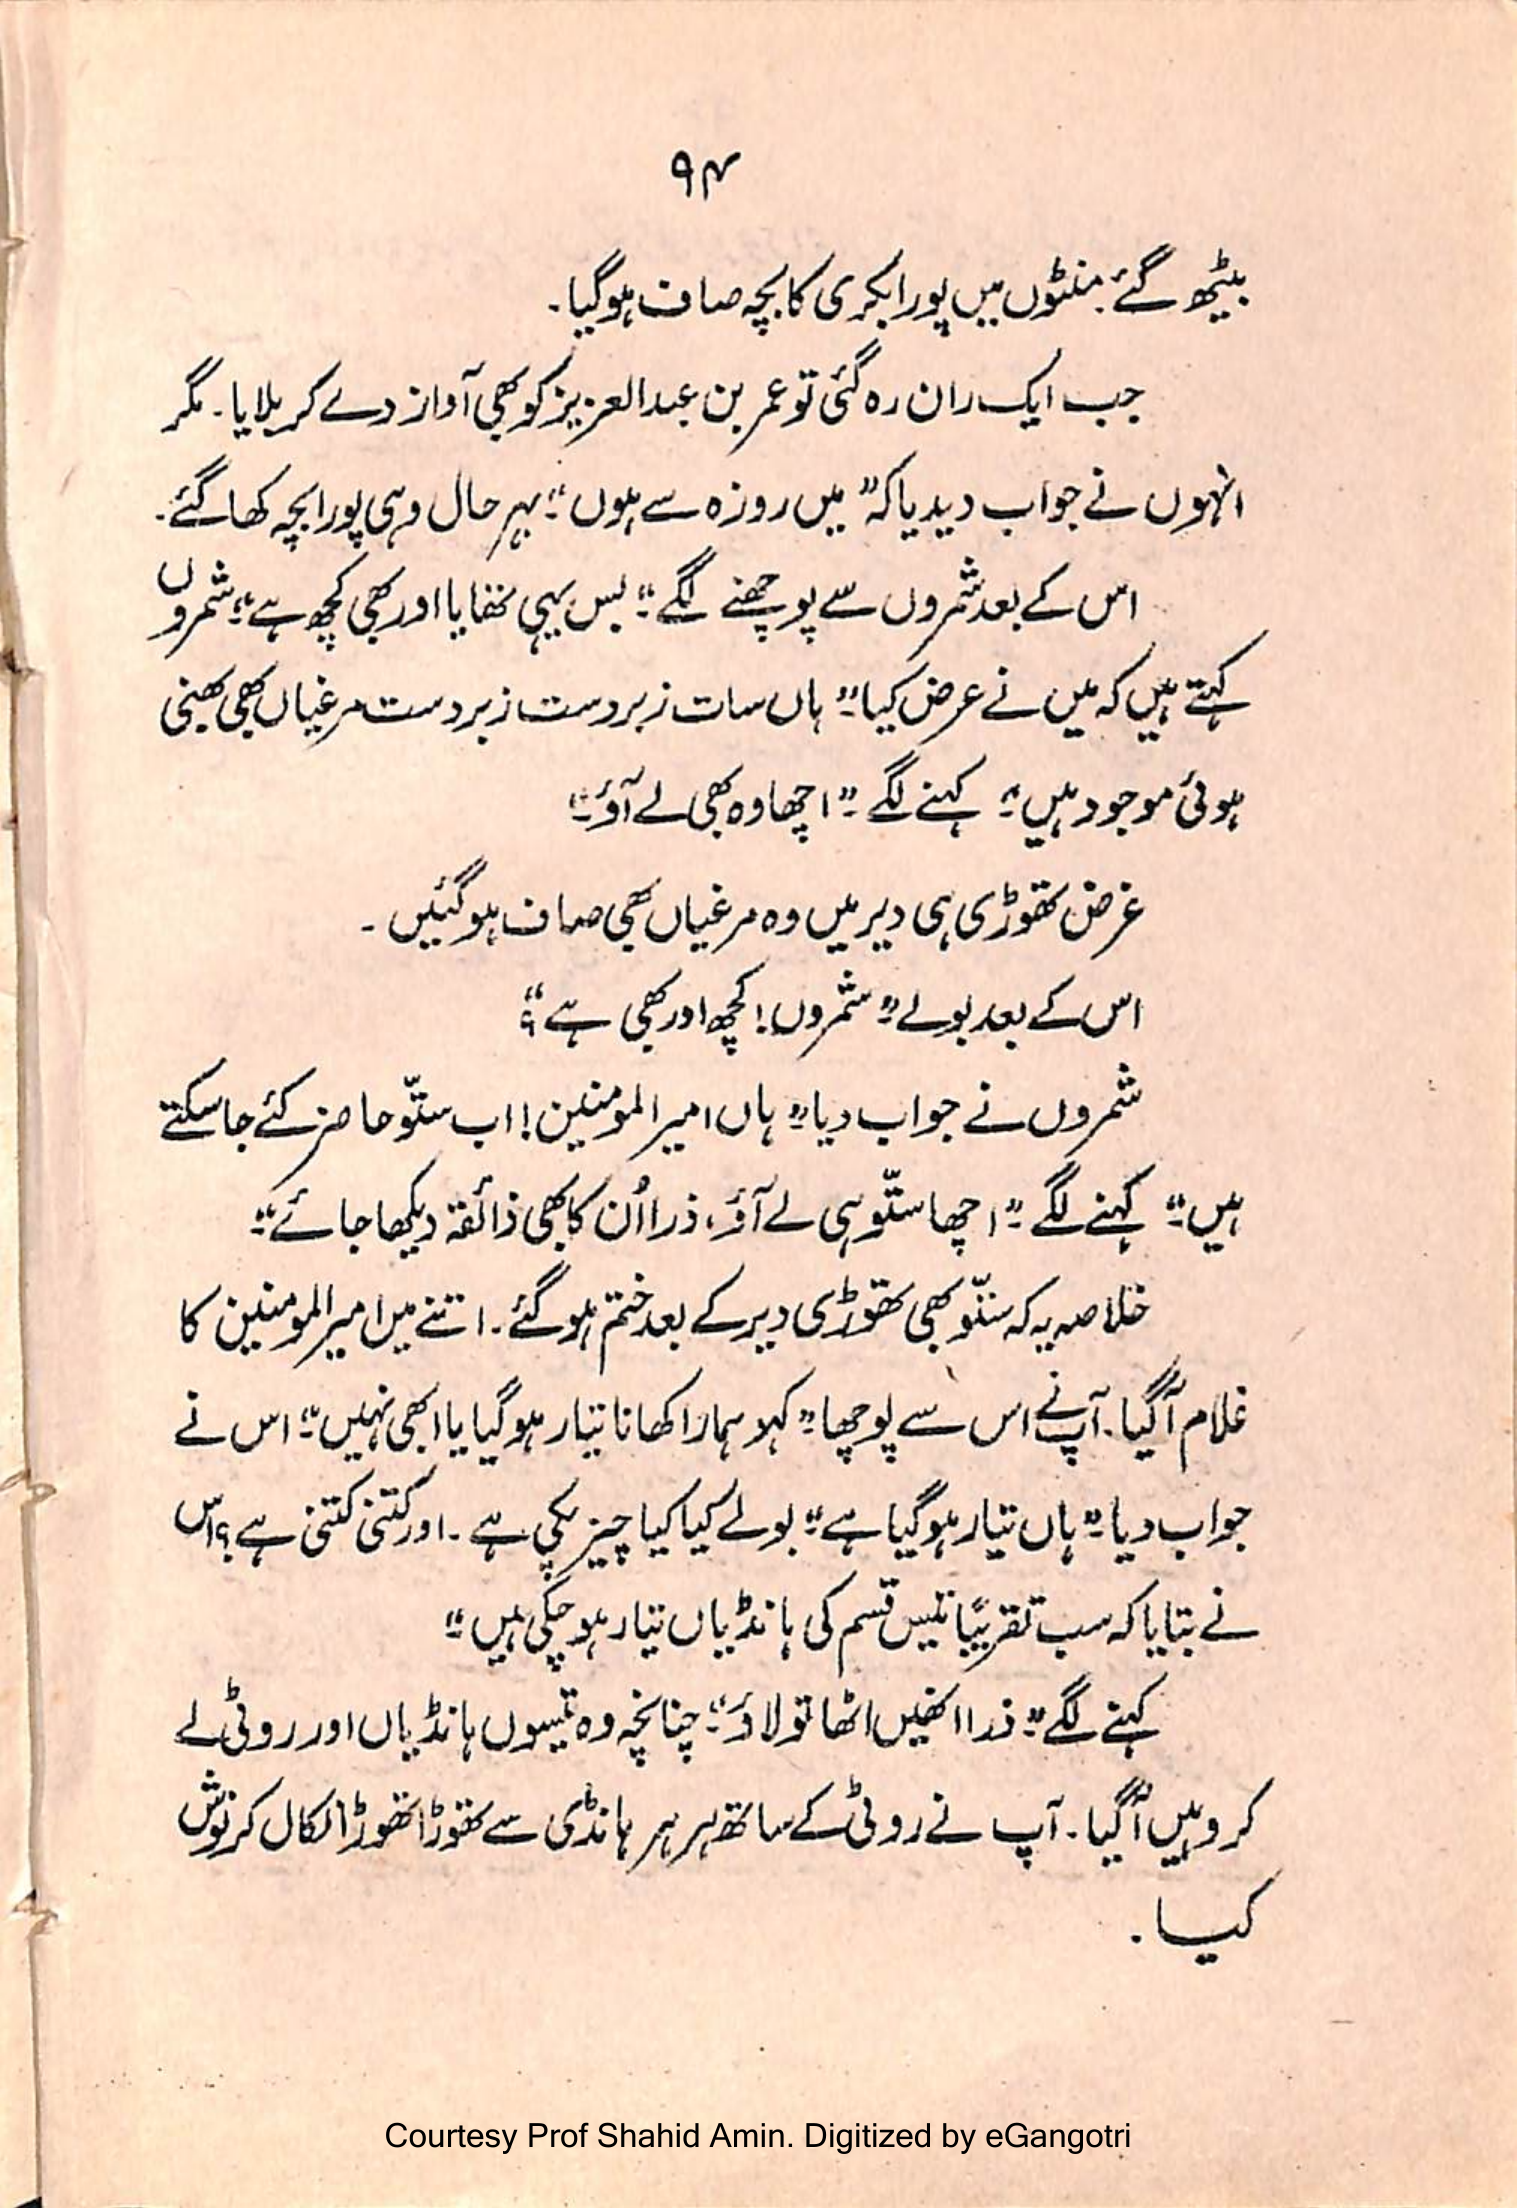 ۹۴
بیٹھ گئے۔ منٹوں میں پورا بکری کا بچہ صاف ہوگیا۔
جب ایک ران رہ گئی تو عمر بن عبدالعزیز کو بھی آواز دے کر بلایا۔ مگر
انہوں نے جواب دیدیا کہ” میں روزہ سے ہوں“۔ بہر حال وہی پورا بچہ کھا گئے۔
اس کے بعد شمروں سے پوچھنے لگے۔“ بس یہی تھا یا اور بھی کچھ ہے“۔ شمروں
کہتے ہیں کہ میں نے عرض کیا۔” ہاں سات زبردست زبردست مرغیاں بھی بھنی
ہوئی موجود ہیں“۔ کہنے لگے ۔” اچھا وہ بھی لے آؤ“۔
غرض تھوڑی ہی دیر میں وہ مرغیاں بھی صاف ہوگئیں ۔
اس کے بعد بولے” شمروں! کچھ اور بھی ہے“؟
شمروں نے جواب دیا” ہاں امیرالمومنین! اب ستّو حاضر کئے جاسکتے
ہیں“۔ کہنے لگے ۔” اچھا ستّو ہی لے آؤ، ذرا اُن کا بھی ذائقہ دیکھا جائے“۔
خلاصہ یہ کہ ستّو بھی تھوڑی دیر کے بعد ختم ہوگئے۔ اتنے میں امیرالمومنین کا
غلام آگیا۔ آپ نے اس سے پوچھا” کہو ہمارا کھانا تیار ہوگیا یا ابھی نہیں“۔ اس نے
جواب دیا۔” ہاں تیار ہوگیا ہے“۔ بولے کیا کیا چیز پکی ہے ۔ اور کتنی کتنی ہے؟ اس
نے بتایا کہ سب تقریباً تیس قسم کی ہانڈیاں تیار ہوچکی ہیں“۔
کہنے لگے” ذرا انھیں اٹھا تو لاؤ“۔ چنانچہ وہ تیسوں ہانڈیاں اور روٹی لے
کر وہیں آگیا۔ آپ نے روٹی کے ساتھ ہر ہر ہانڈی سے تھوڑا تھوڑا نکال کر نوش
کیا ۔
Courtesy Prof Shahid Amin. Digitized by eGangotri